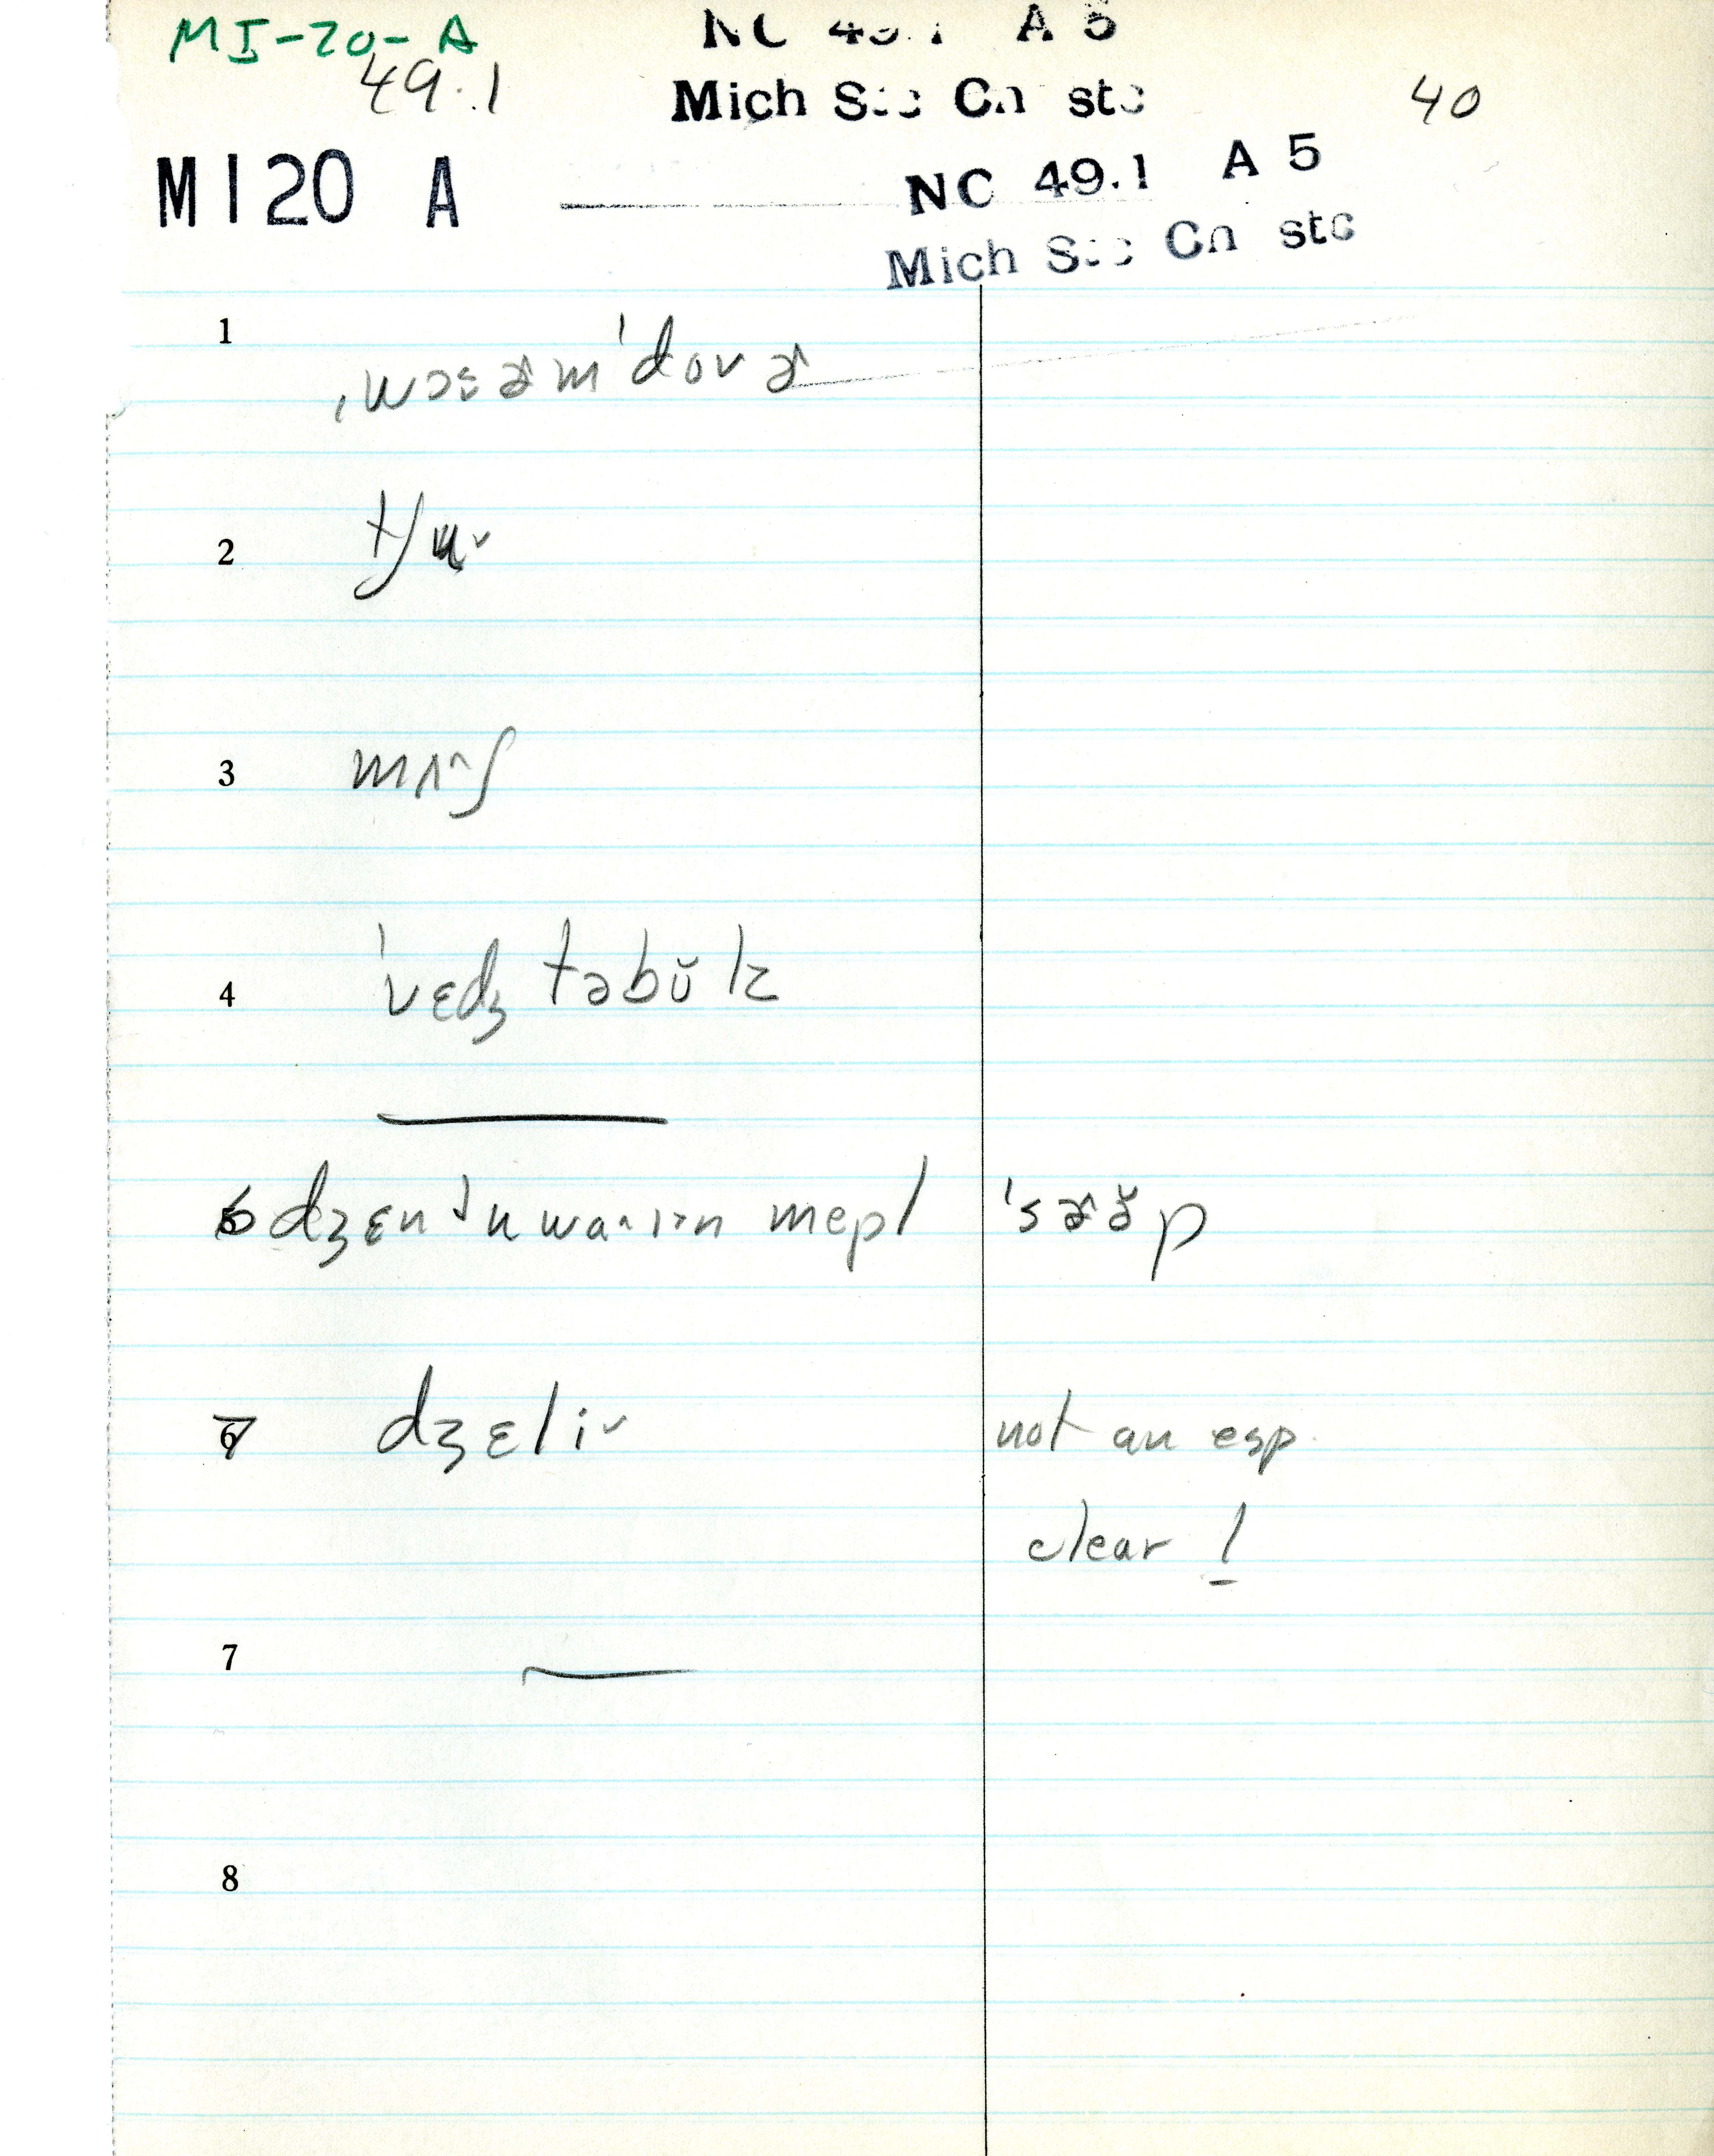 MI-20-A
49.1
NC 49.1 A 5
Mich Stc Cn stc
40
MI20 A
NC 49.1 A 5
Mich Stc Cn stc
1
ˌwɔsɚm'dovɚ
2
tʃu˅
3
mʌ^ʃ
4
'vɛdʒtəbŭlz
6 dʒɛnɪuwa^ɪn mepl 'sɚŏp
7 dʒɛli˅ not an esp.
clear !
7
8